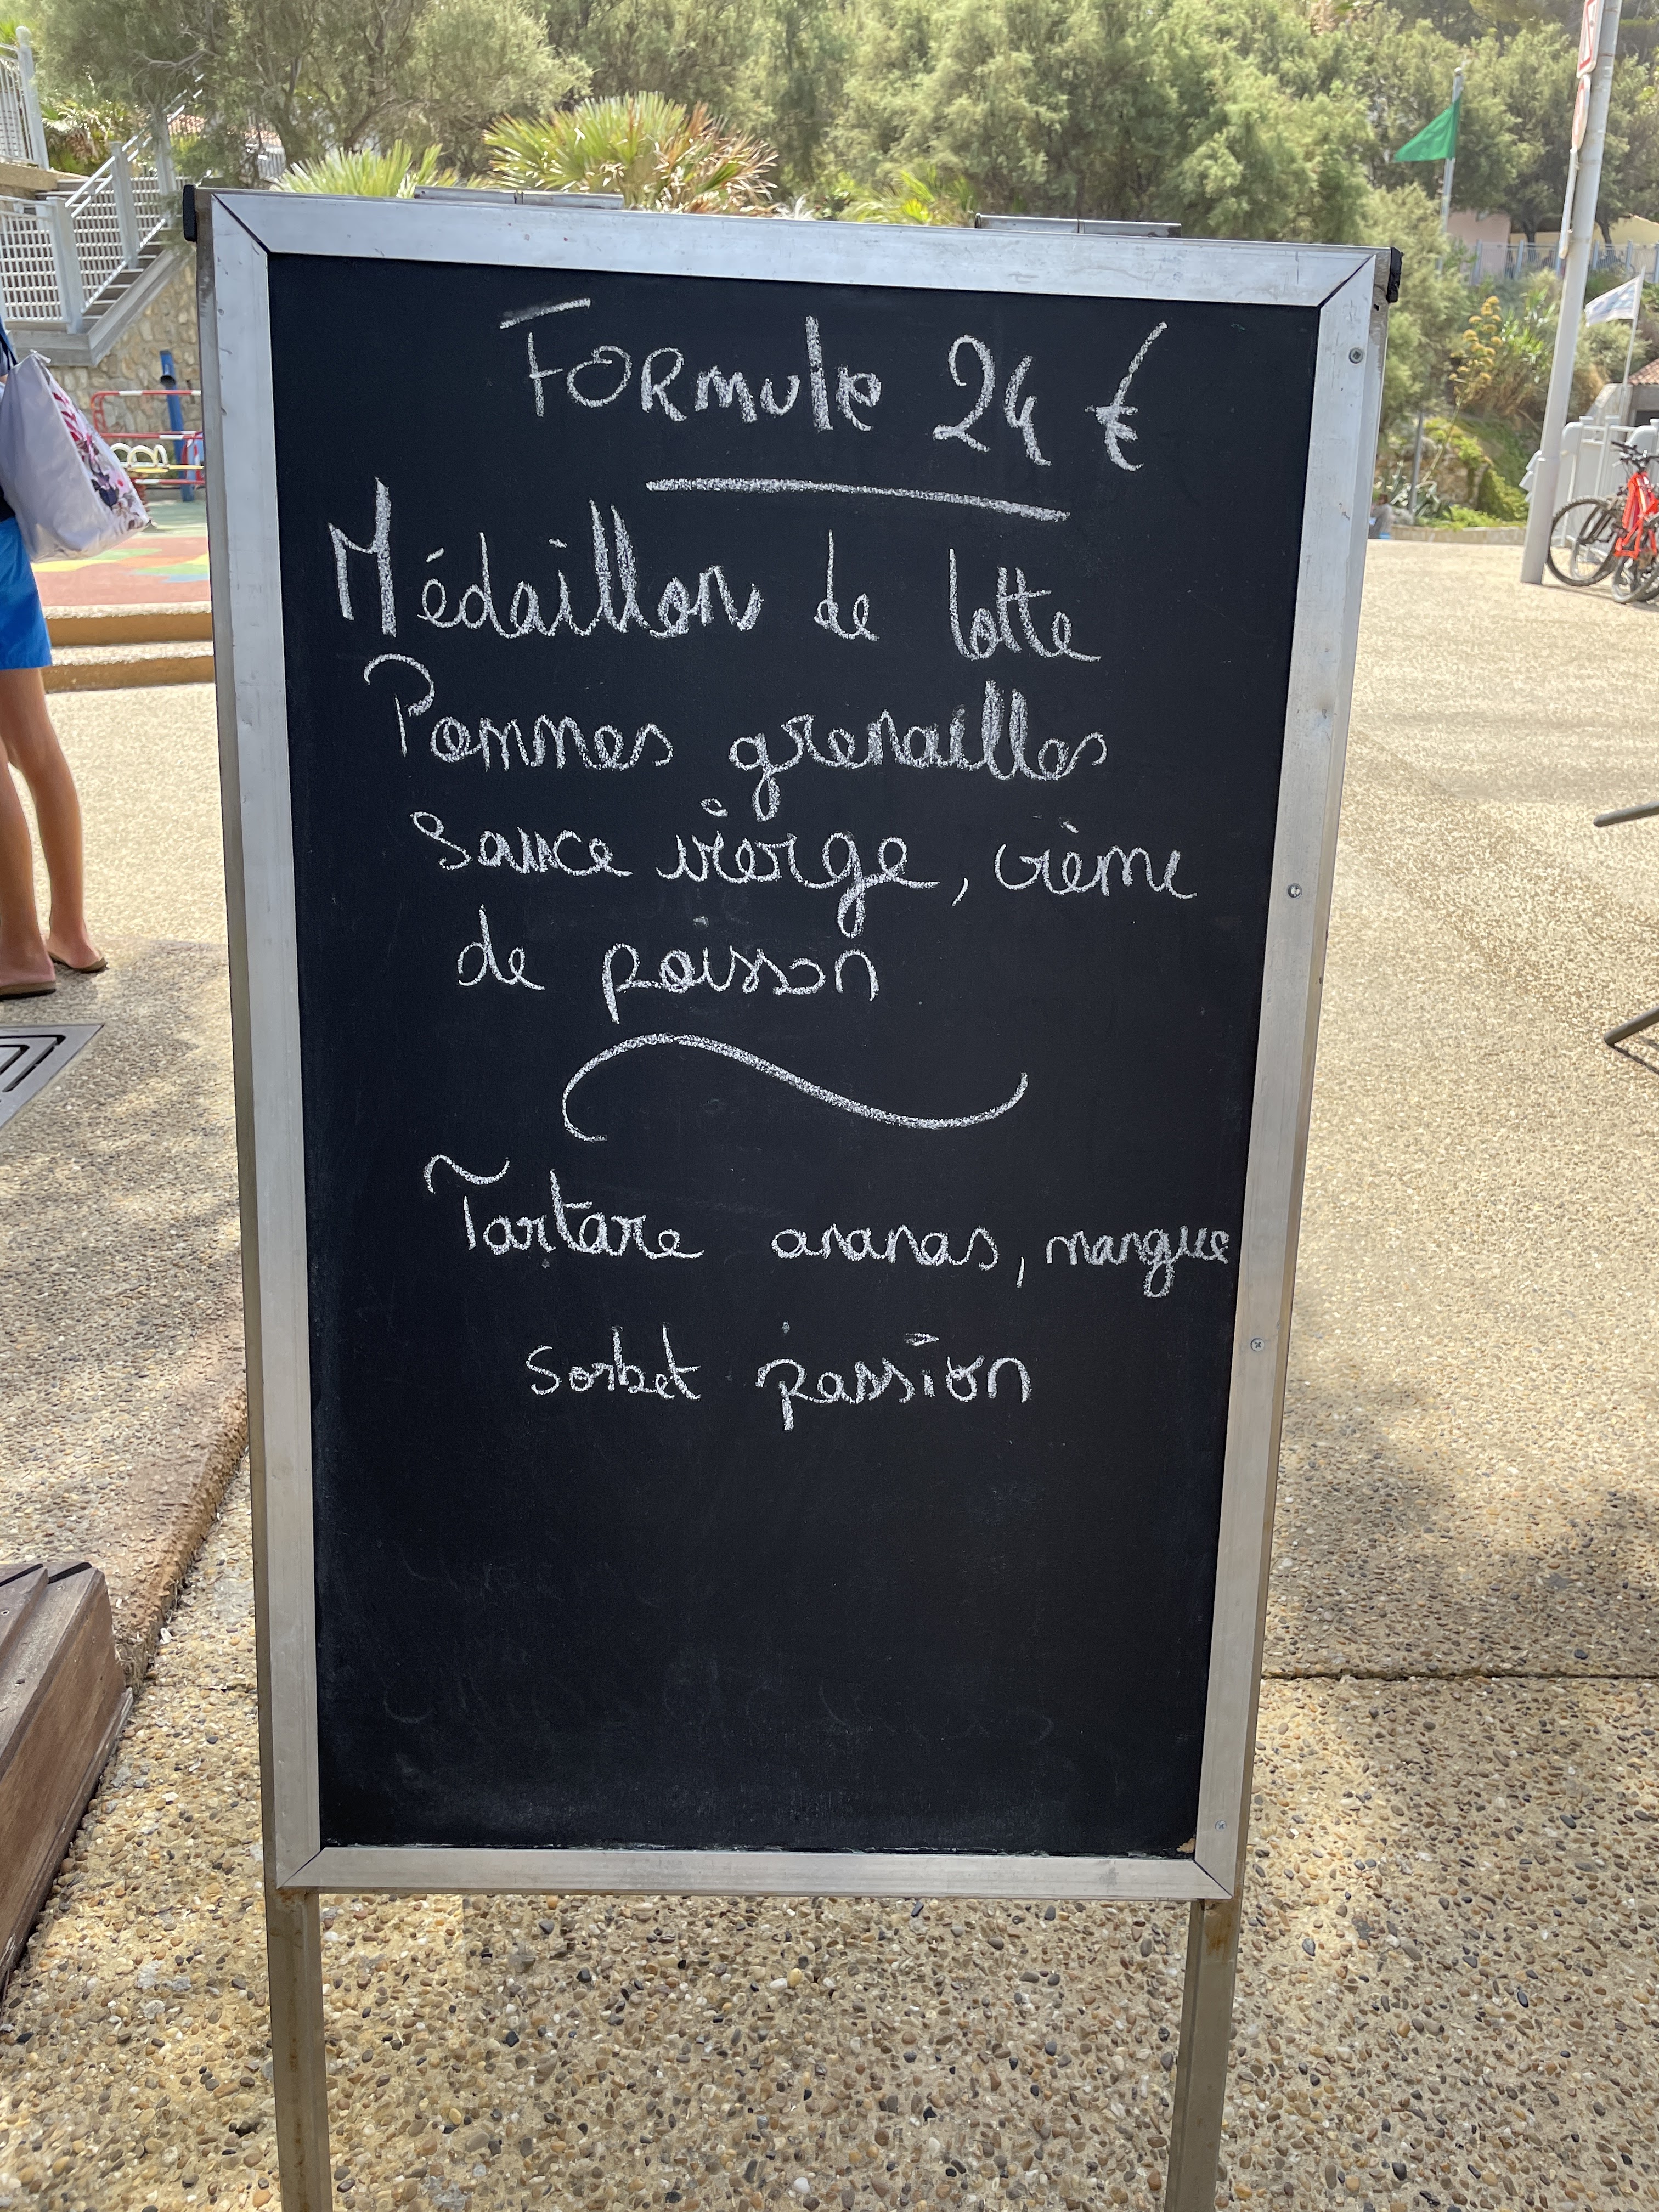 Formule 24 €
Médaillon de lotte
Pommes grenailles
sauce vierge, crème
de poisson
Tartare ananas, mangue
sorbet passion